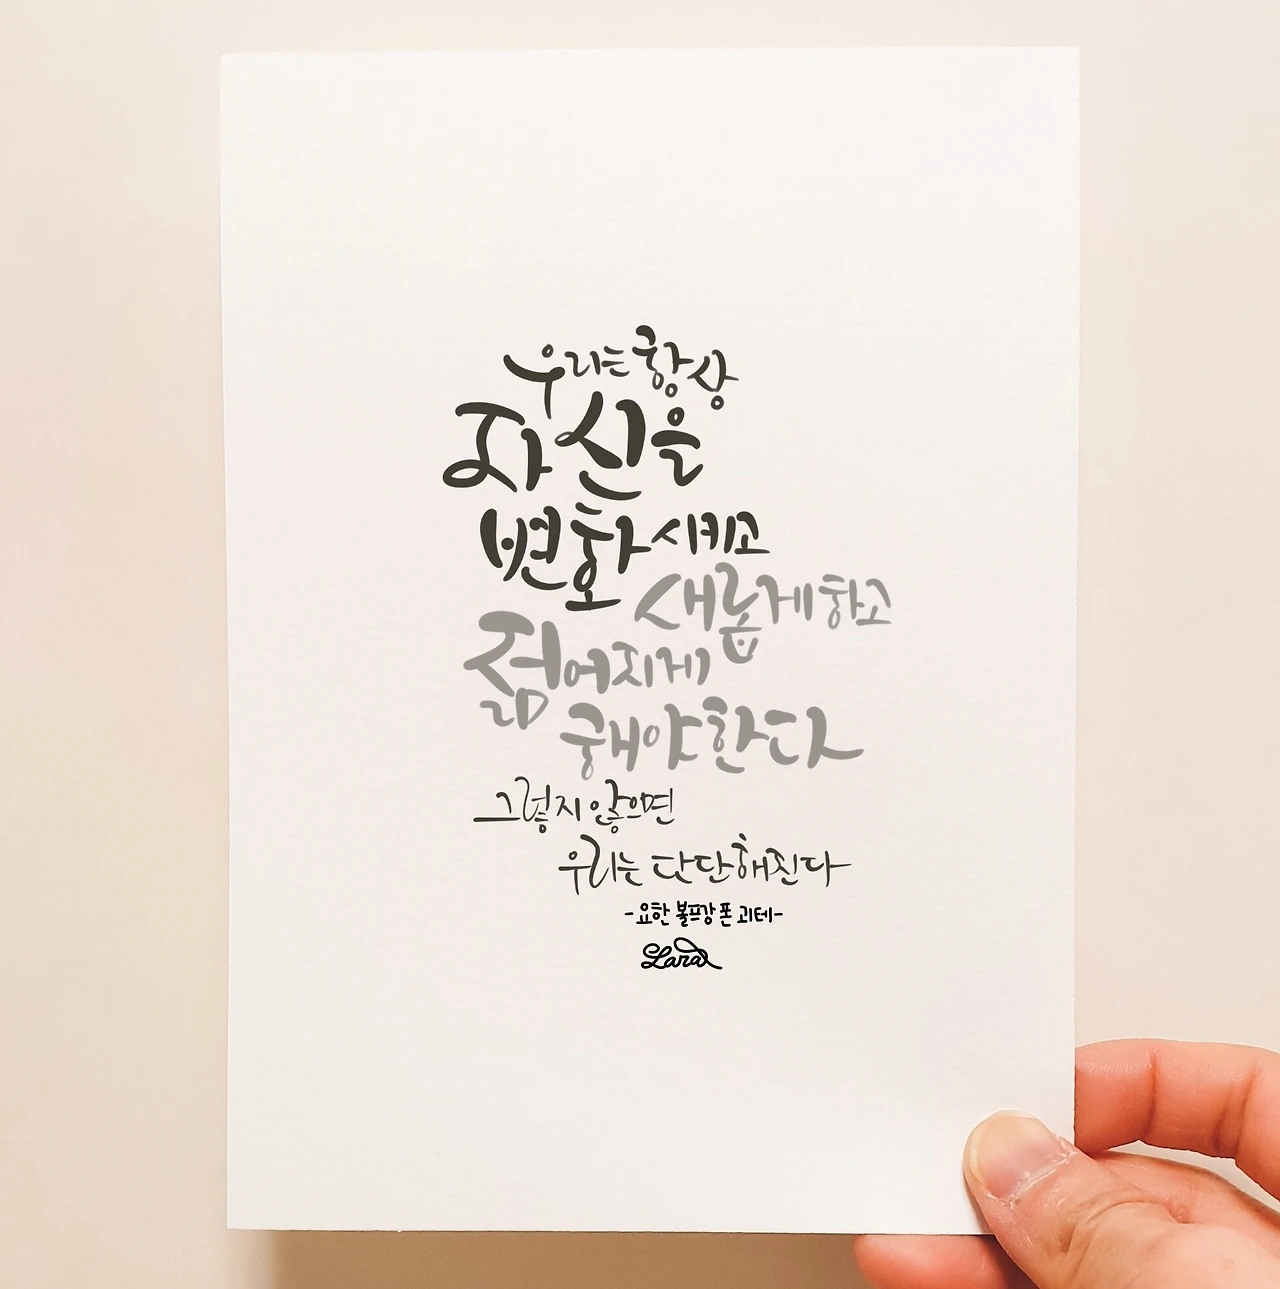 우리는 항상
자신을
변화시키고
새롭게 하고
젊어지게
해야한다
그렇지 않으면
우리는 단단해진다
-요한 볼프강 폰 괴테-
Lara